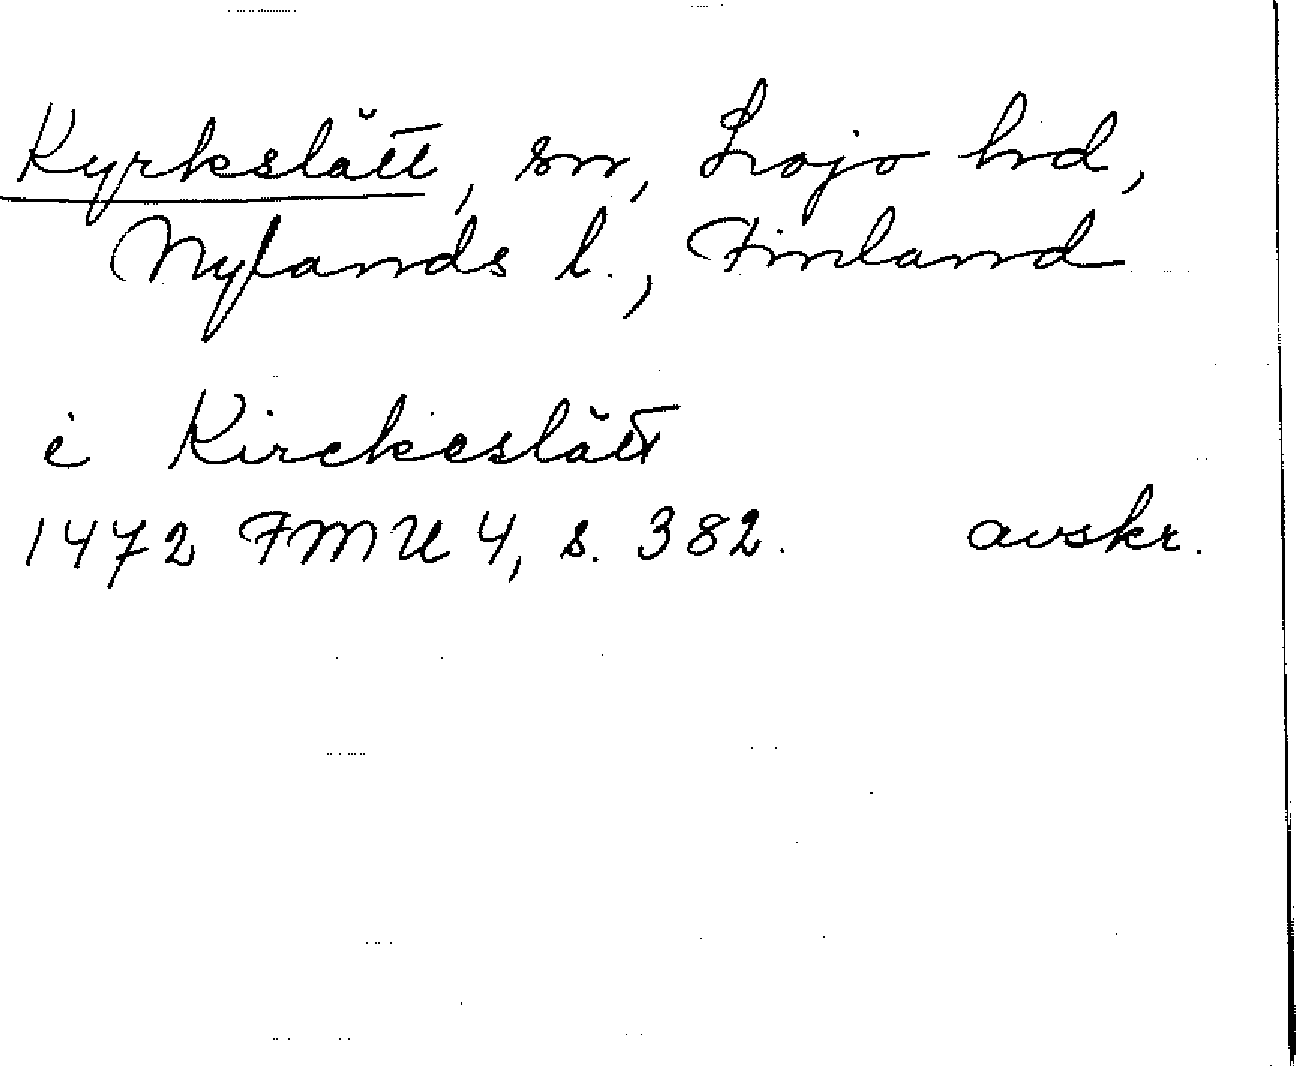 Kyrkslätt, sn, Lojo hd,
Nylands l., Finland
i Kirckeslätt
1472 FMU 4, s. 382. avskr.